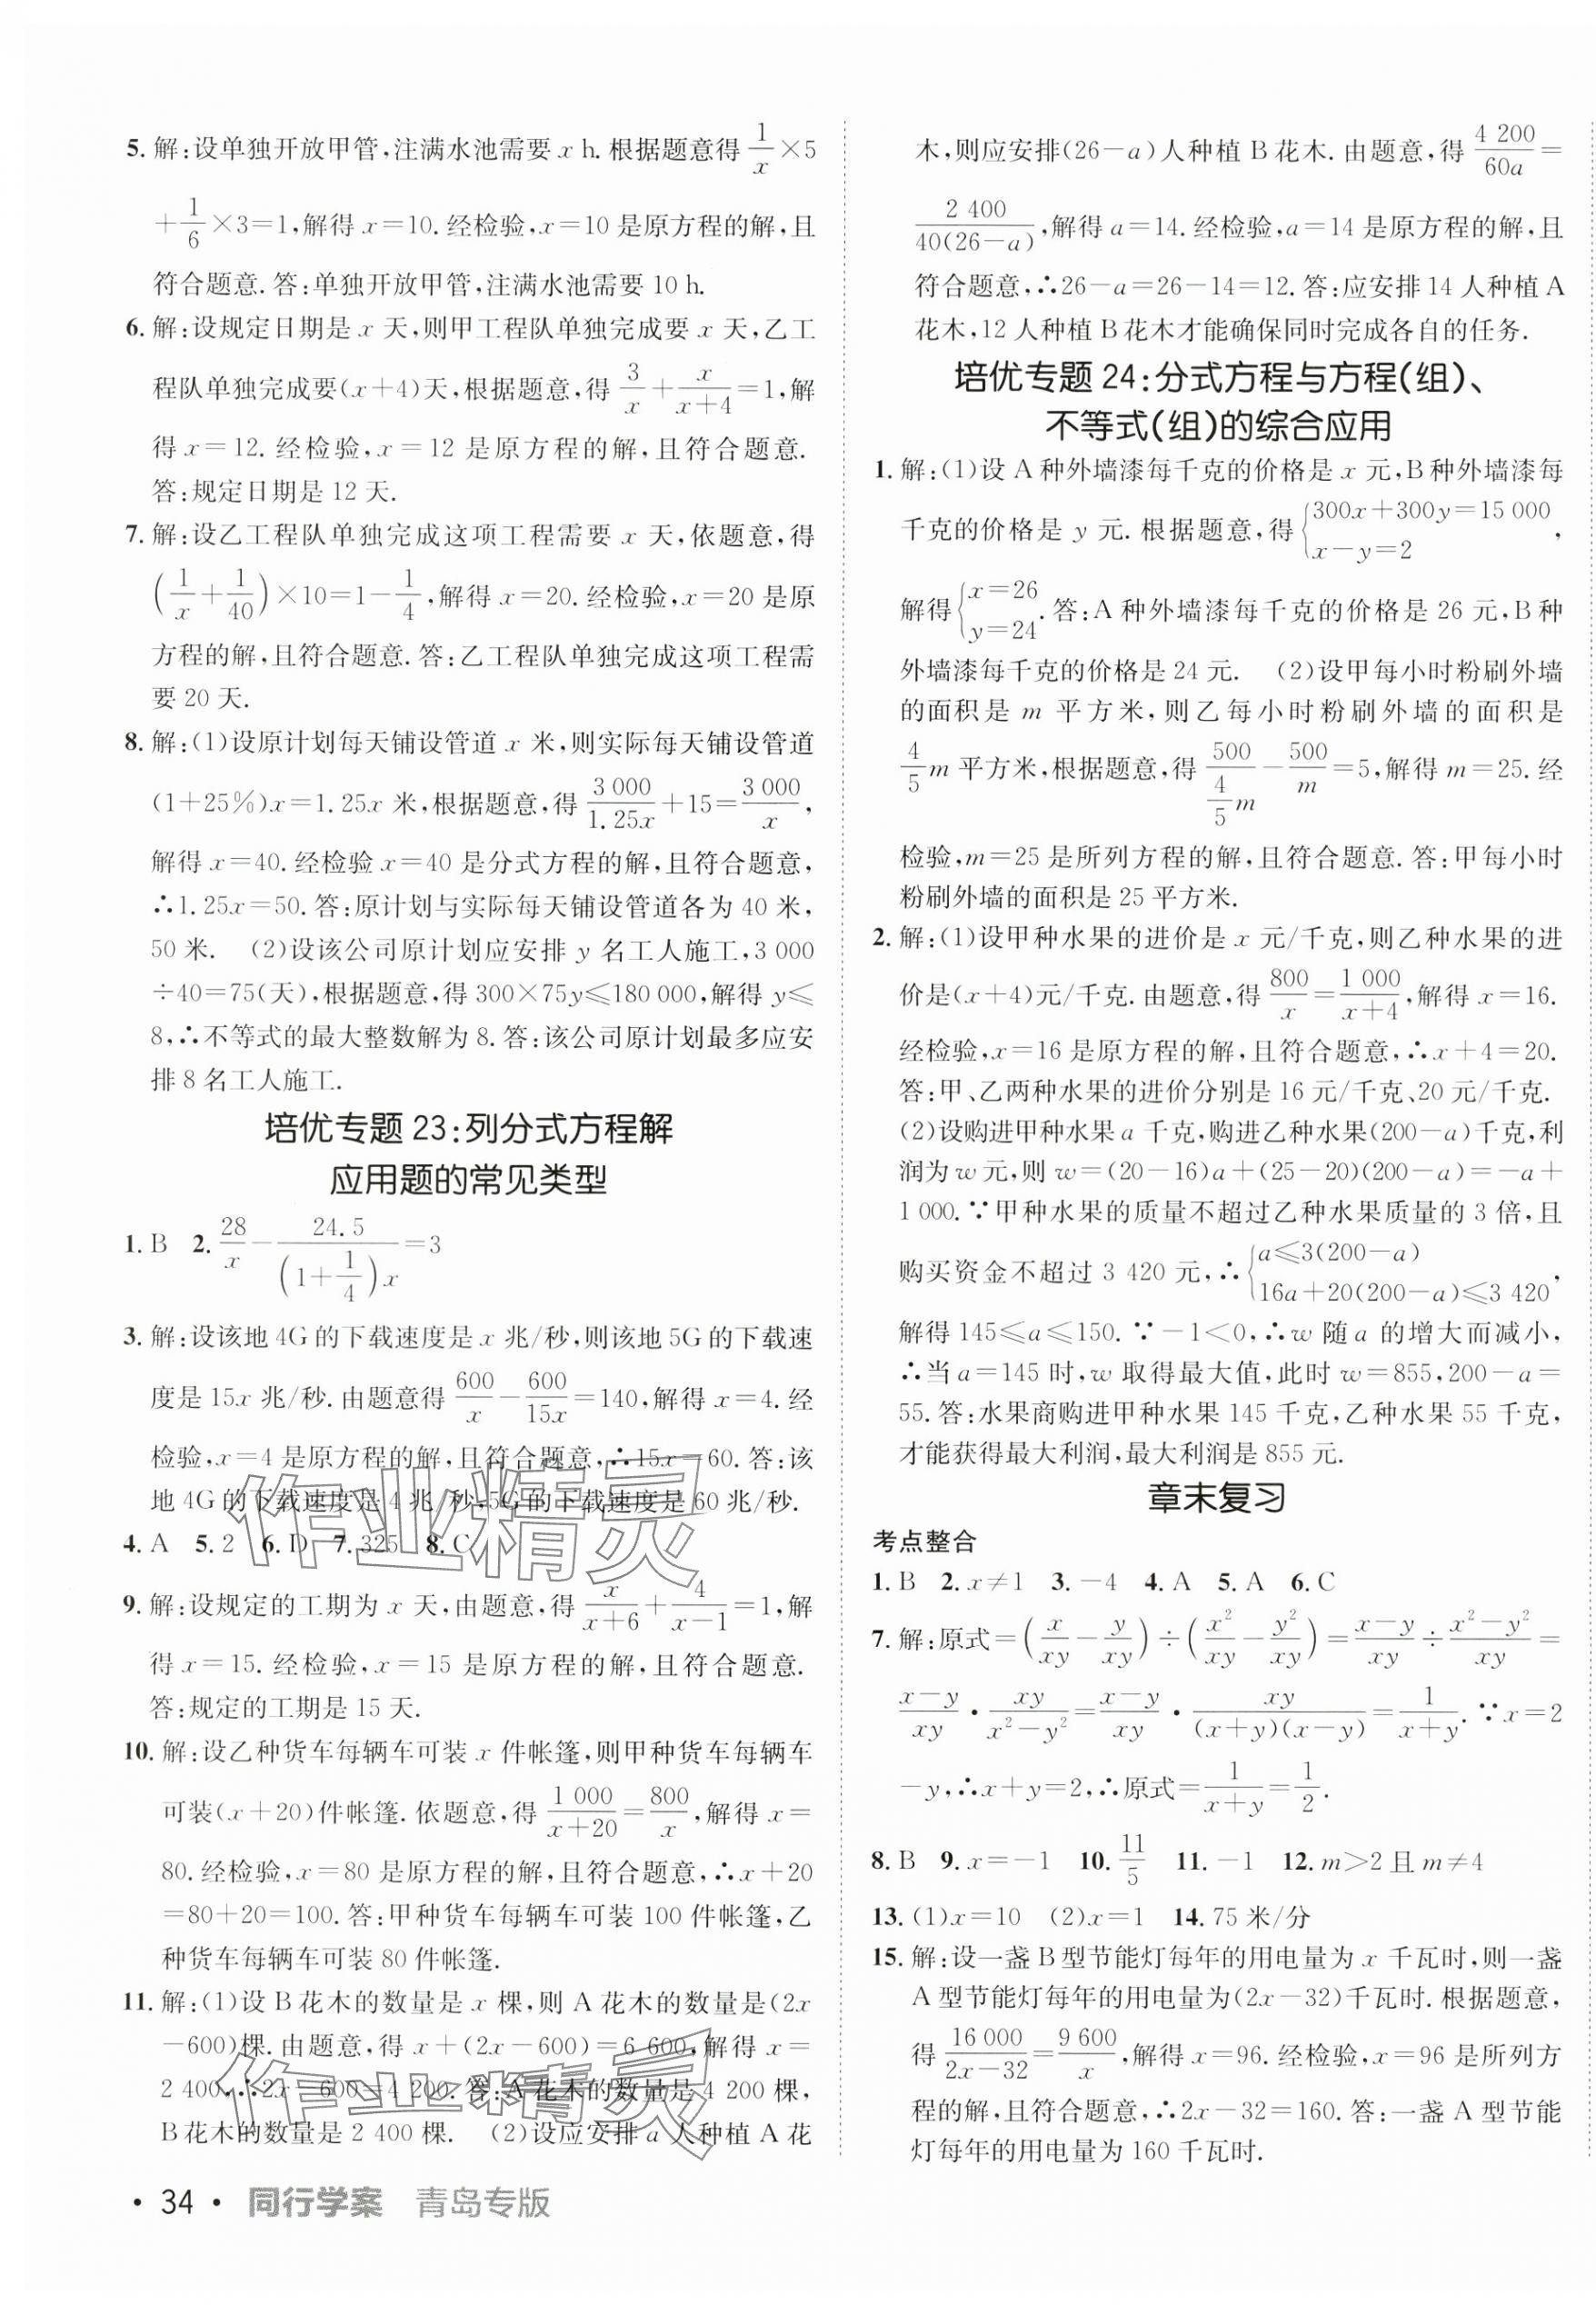 5. 解:设单独开放甲管,注满水池需要 x h. 根据题意得 1/x ×5
+1/6×3=1,解得 x=10. 经检验,x=10 是原方程的解,且
符合题意. 答:单独开放甲管,注满水池需要 10 h.
6. 解:设规定日期是 x 天,则甲工程队单独完成要 x 天,乙工
程队单独完成要(x+4)天,根据题意,得 3/x + x/(x+4) =1,解
得 x=12. 经检验,x=12 是原方程的解,且符合题意.
答:规定日期是 12 天.
7. 解:设乙工程队单独完成这项工程需要 x 天,依题意,得
(1/x + 1/40)×10=1-1/4,解得 x=20. 经检验,x=20 是原
方程的解,且符合题意. 答:乙工程队单独完成这项工程需
要 20 天.
8. 解:(1)设原计划每天铺设管道 x 米,则实际每天铺设管道
(1+25%)x=1.25x 米,根据题意,得 3 000/1.25x +15= 3 000/x,
解得 x=40. 经检验 x=40 是分式方程的解,且符合题意,
∴1.25x=50. 答:原计划与实际每天铺设管道各为 40 米,
50 米. (2)设该公司原计划应安排 y 名工人施工,3 000
÷40=75(天),根据题意,得 300×75y≤180 000,解得 y≤
8,∴不等式的最大整数解为 8. 答:该公司原计划最多应安
排 8 名工人施工.
培优专题 23:列分式方程解
应用题的常见类型
1. B 2. 28/x - 24.5/((1+1/4)x) =3
3. 解:设该地 4G 的下载速度是 x 兆/秒,则该地 5G 的下载速
度是 15x 兆/秒. 由题意得 600/x - 600/15x =140,解得 x=4. 经
检验,x=4 是原方程的解,且符合题意,∴15x=60. 答:该
地 4G 的下载速度是 4 兆/秒,5G 的下载速度是 60 兆/秒.
4. A 5. 2 6. D 7. 325 8. C
9. 解:设规定的工期为 x 天,由题意,得 x/(x+6) + 4/(x-1) =1,解
得 x=15. 经检验,x=15 是原方程的解,且符合题意.
答:规定的工期是 15 天.
10. 解:设乙种货车每辆车可装 x 件帐篷,则甲种货车每辆车
可装(x+20)件帐篷. 依题意,得 1 000/(x+20) = 800/x,解得 x=
80. 经检验,x=80 是原方程的解,且符合题意,∴x+20
=80+20=100. 答:甲种货车每辆车可装 100 件帐篷,乙
种货车每辆车可装 80 件帐篷.
11. 解:(1)设 B 花木的数量是 x 棵,则 A 花木的数量是(2x
-600)棵. 由题意,得 x+(2x-600)=6 600,解得 x=
2 400,∴2x-600=4 200. 答:A 花木的数量是 4 200 棵,
B 花木的数量是 2 400 棵. (2)设应安排 a 人种植 A 花
作业精灵
作业精灵
· 34 · 同行学案 青岛专版
木,则应安排(26-a)人种植 B 花木. 由题意,得 4 200/60a =
2 400/(40(26-a)),解得 a=14. 经检验,a=14 是原方程的解,且
符合题意,∴26-a=26-14=12. 答:应安排 14 人种植 A
花木,12 人种植 B 花木才能确保同时完成各自的任务.
培优专题 24:分式方程与方程(组)、
不等式(组)的综合应用
1. 解:(1)设 A 种外墙漆每千克的价格是 x 元,B 种外墙漆每
千克的价格是 y 元. 根据题意,得 {300x+300y=15 000
x-y=2,
解得 {x=26
y=24. 答:A 种外墙漆每千克的价格是 26 元,B 种
外墙漆每千克的价格是 24 元. (2)设甲每小时粉刷外墙
的面积是 m 平方米,则乙每小时粉刷外墙的面积是
4/5 m 平方米,根据题意,得 500/(4/5 m) - 500/m =5,解得 m=25. 经
检验,m=25 是所列方程的解,且符合题意. 答:甲每小时
粉刷外墙的面积是 25 平方米.
2. 解:(1)设甲种水果的进价是 x 元/千克,则乙种水果的进
价是(x+4)元/千克. 由题意,得 800/x = 1 000/(x+4),解得 x=16.
经检验,x=16 是原方程的解,且符合题意,∴x+4=20.
答:甲、乙两种水果的进价分别是 16 元/千克、20 元/千克.
(2)设购进甲种水果 a 千克,购进乙种水果(200-a)千克,利
润为 w 元,则 w=(20-16)a+(25-20)(200-a)=-a+
1 000. ∵甲种水果的质量不超过乙种水果质量的 3 倍,且
购买资金不超过 3 420 元,∴{a≤3(200-a)
16a+20(200-a)≤3 420,
解得 145≤a≤150. ∵-1<0,∴w 随 a 的增大而减小,
∴当 a=145 时,w 取得最大值,此时 w=855,200-a=
55. 答:水果商购进甲种水果 145 千克,乙种水果 55 千克,
才能获得最大利润,最大利润是 855 元.
章末复习
考点整合
1. B 2. x≠1 3. -4 4. A 5. A 6. C
7. 解:原式=(x/xy - y/xy)÷(x²/xy - y²/xy)= (x-y)/xy ÷ (x²-y²)/xy =
(x-y)/xy · xy/(x²-y²) = (x-y)/xy · xy/((x+y)(x-y)) = 1/(x+y). ∵x=2
-y,∴x+y=2,∴原式= 1/(x+y) = 1/2.
8. B 9. x=-1 10. 11/5 11. -1 12. m>2 且 m≠4
13. (1)x=10 (2)x=1 14. 75 米/分
15. 解:设一盏 B 型节能灯每年的用电量为 x 千瓦时,则一盏
A 型节能灯每年的用电量为(2x-32)千瓦时. 根据题意,
得 16 000/(2x-32) = 9 600/x,解得 x=96. 经检验,x=96 是所列方
程的解,且符合题意,∴2x-32=160. 答:一盏 A 型节能
灯每年的用电量为 160 千瓦时.